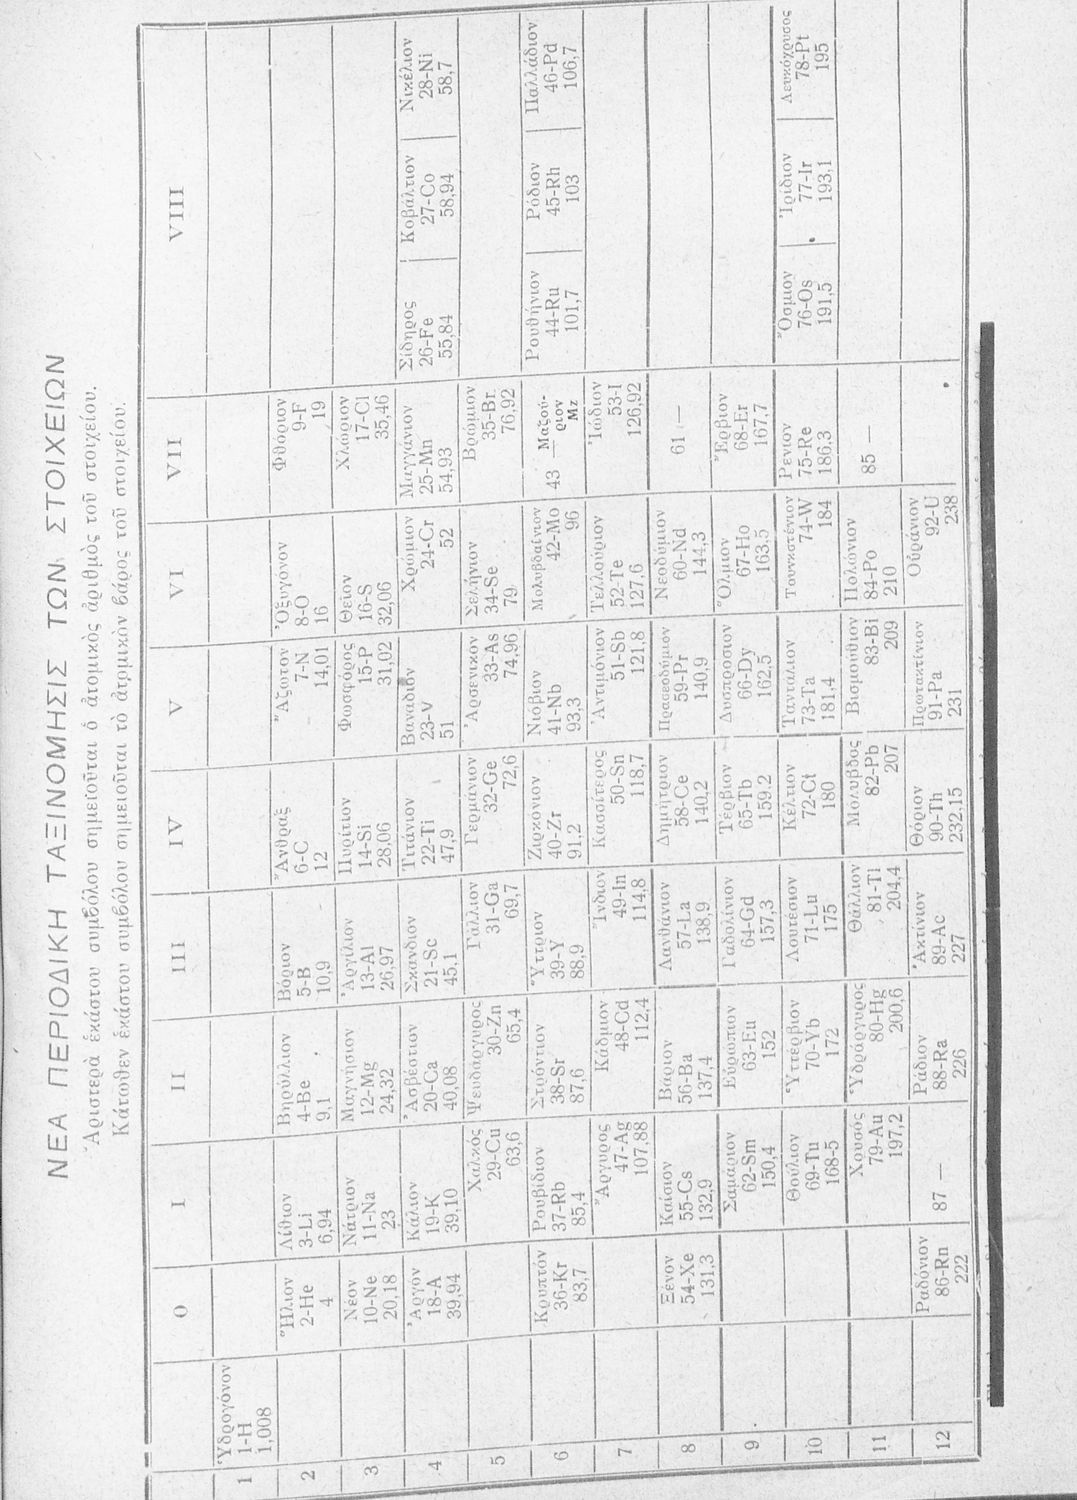 ΝΕΑ ΠΕΡΙΟΔΙΚΗ ΤΑΞΙΝΟΜΗΣΙΣ ΤΩΝ ΣΤΟΙΧΕΙΩΝ
Ἀριστερὰ ἑκάστου συμβόλου σημειοῦται ὁ ἀτομικὸς ἀριθμὸς τοῦ στοιχείου.
Κάτωθεν ἑκάστου συμβόλου σημειοῦται τὸ ἀτομικὸν βάρος τοῦ στοιχείου.
O I II III IV V VI VII VIII
1
Ὑδρογόνον
1-H
1,008
2
Ἥλιον
2-He
4
Λίθιον
3-Li
6,94
Βηρύλλιον
4-Be
9,1
Βόριον
5-B
10,9
Ἄνθραξ
6-C
12
Ἄζωτον
7-N
14,01
Ὀξυγόνον
8-O
16
Φθόριον
9-F
19
3
Νέον
10-Ne
20,18
Νάτριον
11-Na
23
Μαγνήσιον
12-Mg
24,32
Ἀργίλιον
13-Al
26,97
Πυρίτιον
14-Si
28.06
Φωσφόρος
15-P
31,02
Θεῖον
16-S
32,06
Χλώριον
17-Cl
35,46
4
Ἀργόν
18-A
39,94
Κάλιον
19-K
39,10
Ἀσβέστιον
20-Ca
40,08
Σκανδιον
21-Sc
45,1
Τιτάνιον
22-Ti
47,9
Βαναδιον
23-V
51
Χρώμιον
24-Cr
52
Μαγγάνιον
25-Mn
54,93
Σίδηρος
26-Fe
55,84
Κοβάλτιον
27-Co
58,94
Νικέλιον
28-Ni
58,7
5
Χαλκός
29-Cu
63,6
Ψευδάργυρος
30-Zn
65,4
Γάλλιον
31-Ga
69,7
Γερμάνιον
32-Ge
72,6
Ἀρσενικον
33-As
74,96
Σελήνιον
34-Se
79
Βρώμιον
35-Br
76,92
6
Κρυπτόν
36-Kr
83,7
Ρουβίδιον
37-Rb
85,4
Στρόντιον
38-Sr
87,6
Ὕττριον
39-Y
88,9
Ζιρκονιον
40-Zr
91,2
Νιόβιον
41-Nb
93,3
Μολυβδαίνιον
42-Mo
96
43 — Μαζου-
ριον
Mz
Ρουθήνιον
44-Ru
101,7
Ρόδιον
45-Rh
103
Παλλάδιον
46-Pd
106,7
7
Ἄργυρος
47-Ag
107,88
Κάδμιον
48-Cd
112,4
Ἴνδιον
49-In
114,8
Κασσίτερος
50-Sn
118,7
Ἀντιμόνιον
51-Sb
121,8
Τελλούριον
52-Te
127,6
Ἰώδιον
53-I
126,92
8
Ξένον
54-Xe
131,3
Καίσιον
55-Cs
132,9
Βάριον
56-Ba
137,4
Λανθάνιον
57-La
138,9
Δημήτριον
58-Ce
140,2
Πρασεοδύμιον
59-Pr
140,9
Νεοδύμιον
60-Nd
144,3
61 —
9
Σαμάριον
62-Sm
150,4
Εὐρώπιον
63-Eu
152
Γαδολίνιον
64-Gd
157,3
Τέρβιον
65-Tb
159.2
Δυσπροσιον
66-Dy
162,5
Ὅλμιον
67-Ho
163.5
Ἔρβιον
68-Er
167,7
10
Θούλιον
69-Tu
168-5
Ὑττέρβιον
70-Yb
172
Λουτέσιον
71-Lu
175
Κέλτιον
72-Ct
180
Ταντάλιον
73-Ta
181,4
Τουνκστένιον
74-W
184
Ρενιον
75-Re
186,3
Ὄσμιον
76-Os
191,5
Ἰρίδιον
77-Ir
193,1
Λευκόχρυσος
78-Pt
195
11
Χρυσός
79-Au
197,2
Ὑδράργυρος
80-Hg
200,6
Θάλλιον
81-Tl
204,4
Μόλυβδος
82-Pb
207
Βισμούθιον
83-Bi
209
Πολόνιον
84-Po
210
85 —
12
Ραδόνιον
86-Rn
222
87 —
Ράδιον
88-Ra
226
Ἀκτίνιον
89-Ac
227
Θόριον
90-Th
232.15
Πρωτακτίνιον
91-Pa
231
Οὐράνιον
92-U
238